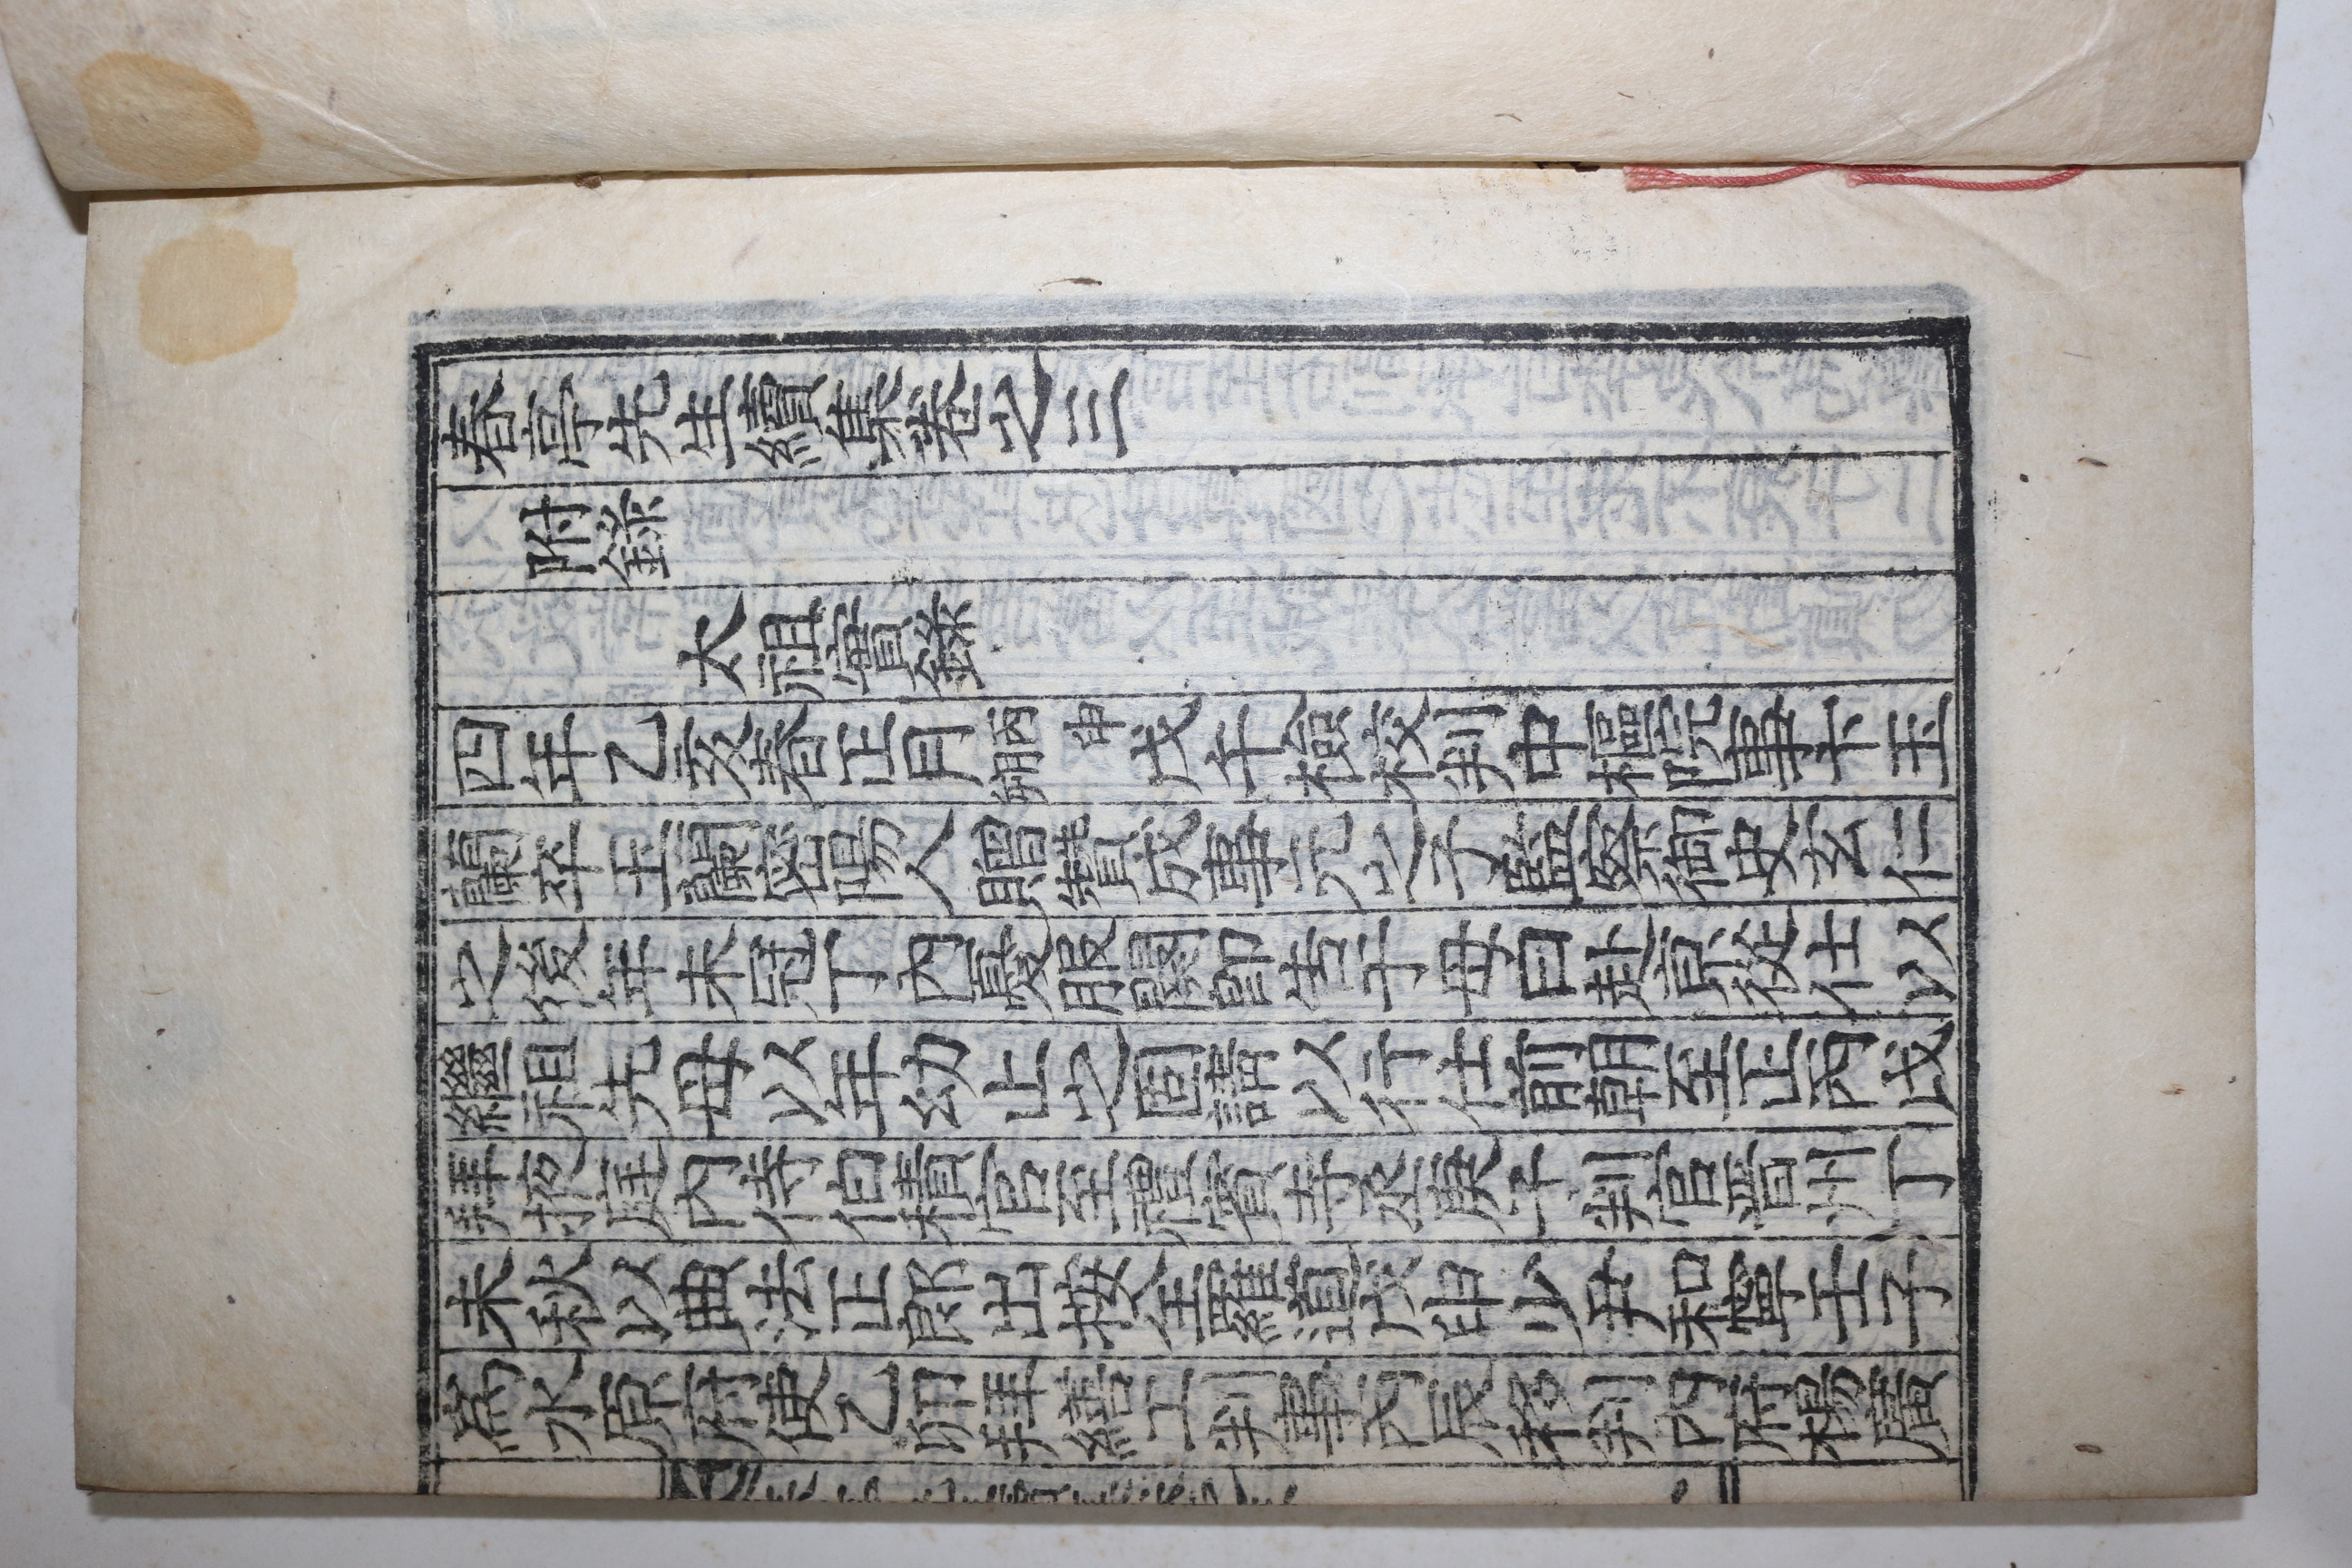 春亭先生續集卷之三
附錄
太祖實錄
四年乙亥春正月丙申朔戊午檢校判中樞院事卞玉
蘭卒玉蘭密陽人贈贊成事元之子監察御史玄仁
之後年未冠丁內憂服闋卽告于母曰赴京從仕以
繼祖先母以年幼止之固請以行仕前朝至正丙戌
拜掖庭內侍伯積官至禮賓寺丞庚子判官晋州丁
未秋以典法正郎出按全羅道戊申少尹和寧壬子
爲水原府使乙卯拜繕工判事丙辰移判內府楊廣